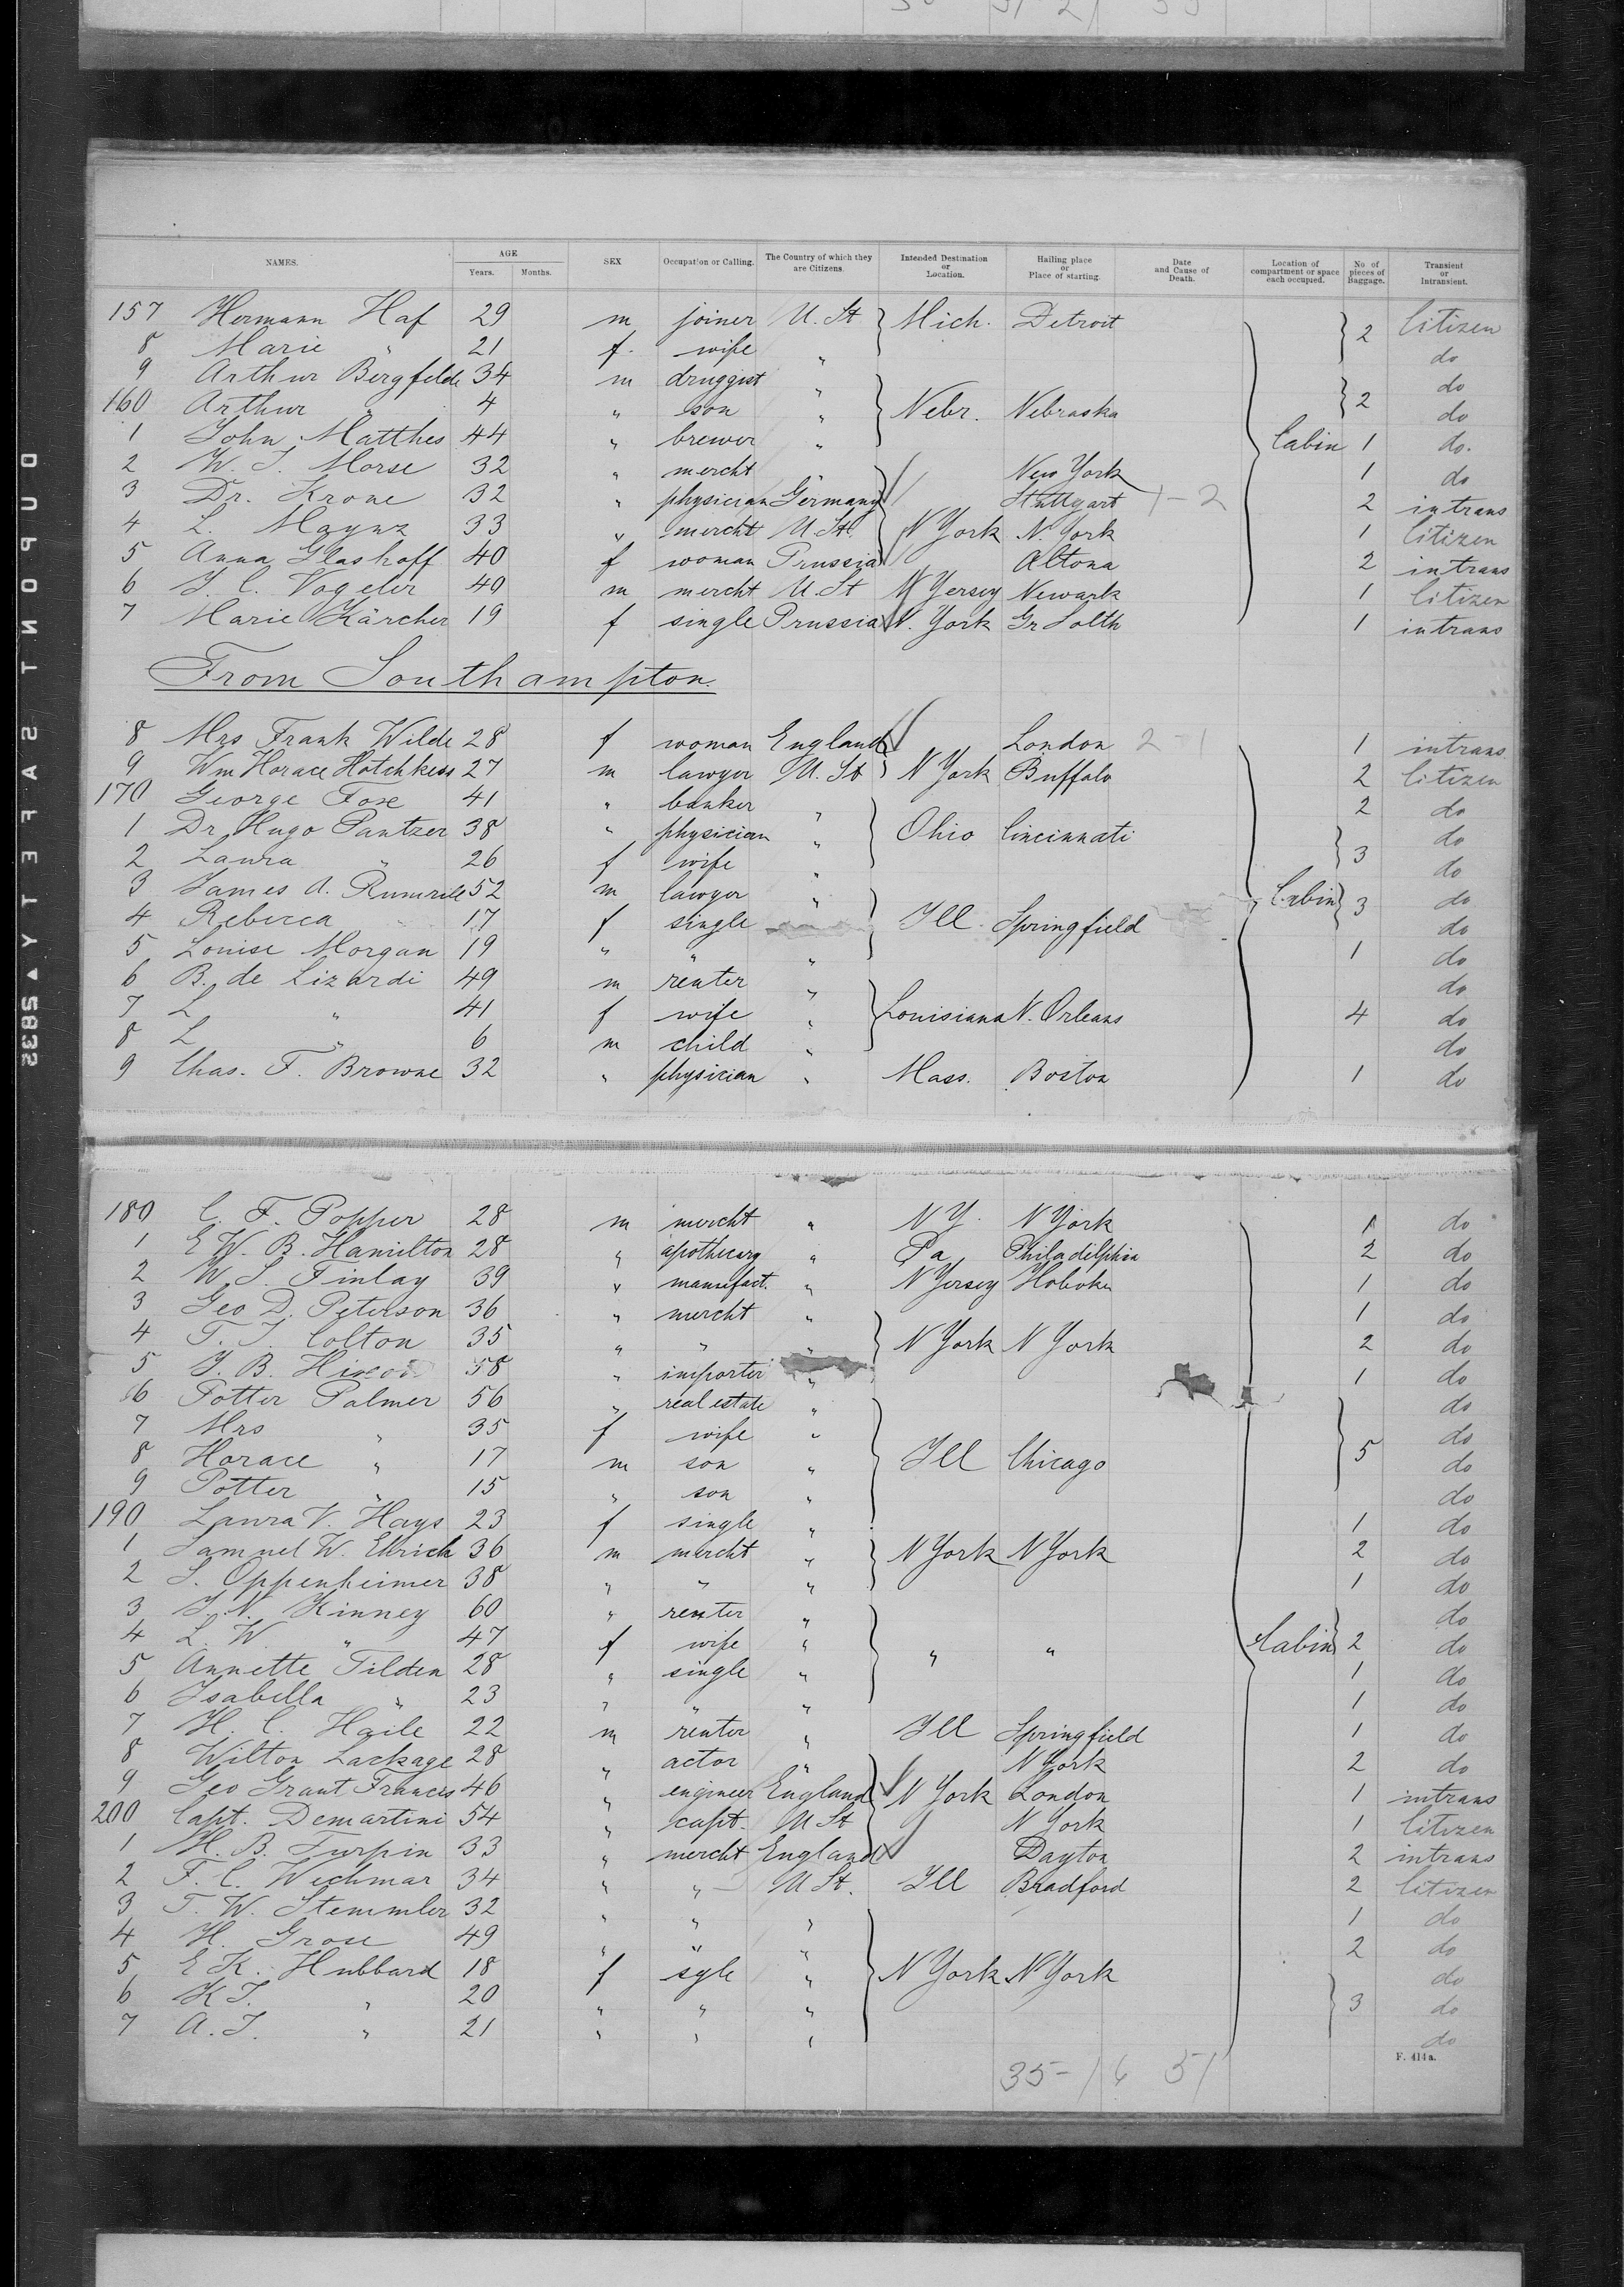 NAMES. AGE Years. Months. SEX Occupation or Calling. The Country of which they are Citizens. Intended Destination or Location. Hailing place or Place of starting. Date and Cause of Death. Location of compartment or space each occupied. No of pieces of Baggage. Transient or Intransient.
157 Hermann Haf 29 m joiner U. St Mich. Detroit 2 Citizen
8 Marie " 21 f. wife " do
9 Arthur Bergfelde 34 m druggist " do
160 Arthur " 4 " son " Nebr. Nebraska 2 do
1 John Matthes 44 " brewer " Cabin 1 do.
2 W. J. Morse 32 " mercht " New York 1 do
3 Dr. Krone 32 " physician Germany Stuttgart 1-2 2 intrans
4 L. Maynz 33 " mercht U. St. N York N. York 1 Citizen
5 Anna Glashoff 40 f woman Prussia Altona 2 intrans
6 J. C. Vogeler 40 m mercht U. St N Yersey Newark 1 Citizen
7 Marie Kärcher 19 f single Prussia N. York Gr Solth 1 intrans
From Southampton.
8 Mrs Frank Wilde 28 f woman England London 2-1 1 intrans
9 Wm Horace Hotchkess 27 m lawyer U. St N York Buffalo 2 Citizen
170 George Fox 41 " banker " 2 do
1 Dr Hugo Pantzer 38 " physician " Ohio Cincinnati do
2 Laura " 26 f wife " 3 do
3 James A. Rumrill 52 m lawyer " Cabin 3 do
4 Rebecca 17 f single Ill Springfield do
5 Louise Morgan 19 " " " 1 do
6 B. de Lizardi 49 m renter " do
7 L " 41 f wife " Louisiana N. Orleans 4 do
8 L " 6 m child " do
9 Chas. F. Browne 32 " physician " Mass. Boston 1 do
180 C. F. Popper 28 m mercht " N Y. N York 1 do
1 E W. B. Hamilton 28 " apothecary " Pa Philadelphia 2 do
2 W. S. Finlay 39 " manufact. " N Yersey Hoboken 1 do
3 Geo D. Peterson 36 " mercht " 1 do
4 T. J. Colton 35 " " " N York N York 2 do
5 J. B. 58 " importer " 1 do
6 Potter Palmer 56 " real estate " do
7 Mrs " 35 f wife " do
8 Horace " 17 m son " Ill Chicago 5 do
9 Potter " 15 " son " do
190 Laura V. Hays 23 f single " 1 do
1 Samuel W. Ehrich 36 m mercht " N York N York 2 do
2 S. Oppenheimer 38 " " " 1 do
3 J. N. Kinney 60 " renter " do
4 L. W. " 47 f wife " " " Cabin 2 do
5 Annette Tilden 28 " single " 1 do
6 Isabella " 23 " " " 1 do
7 H. C. Haile 22 m renter " Ill Springfield 1 do
8 Wilton Lackage 28 " actor " N York 2 do
9 Geo Grant Francis 46 " engineer England N York London 1 intrans
200 Capt. Demartini 54 " capt. U St N York 1 Citizen
1 H. B. Turpin 33 " mercht England Dayton 2 intrans
2 F. C. Wechmar 34 " " U St. Ill Bradford 2 Citizen
3 T. W. Stemmler 32 " " " 1 do
4 H. Grose 49 " " " 2 do
5 E K. Hubbard 18 f sgle " N York N York do
6 K J. " 20 " " " 3 do
7 A. J. " 21 " " " do
F. 414a.
35-16 51
DUPONT SAFETY ▲ 5832